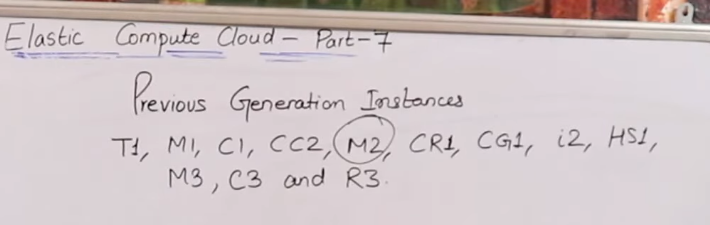 Elastic Compute Cloud - Part-7
Previous Generation Instances
T1, M1, C1, CC2, M2, CR1, CG1, i2, HS1,
M3, C3 and R3.